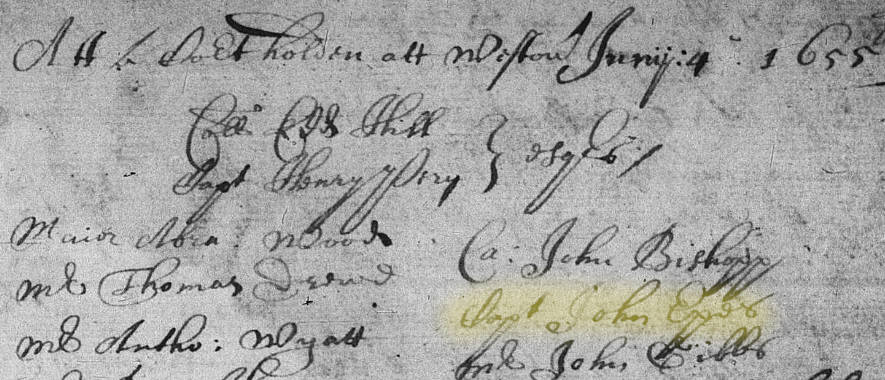 Att a Court holden att Weston Junij: 4th 1655
Coll Edd Hill
Capt Henry Pery } esqrs /
Maior Abra: Wood
Ca: John Bishopp
mr Thomas Drewe
Capt John Epes
mr Antho: Wyatt
mr John Gibbs